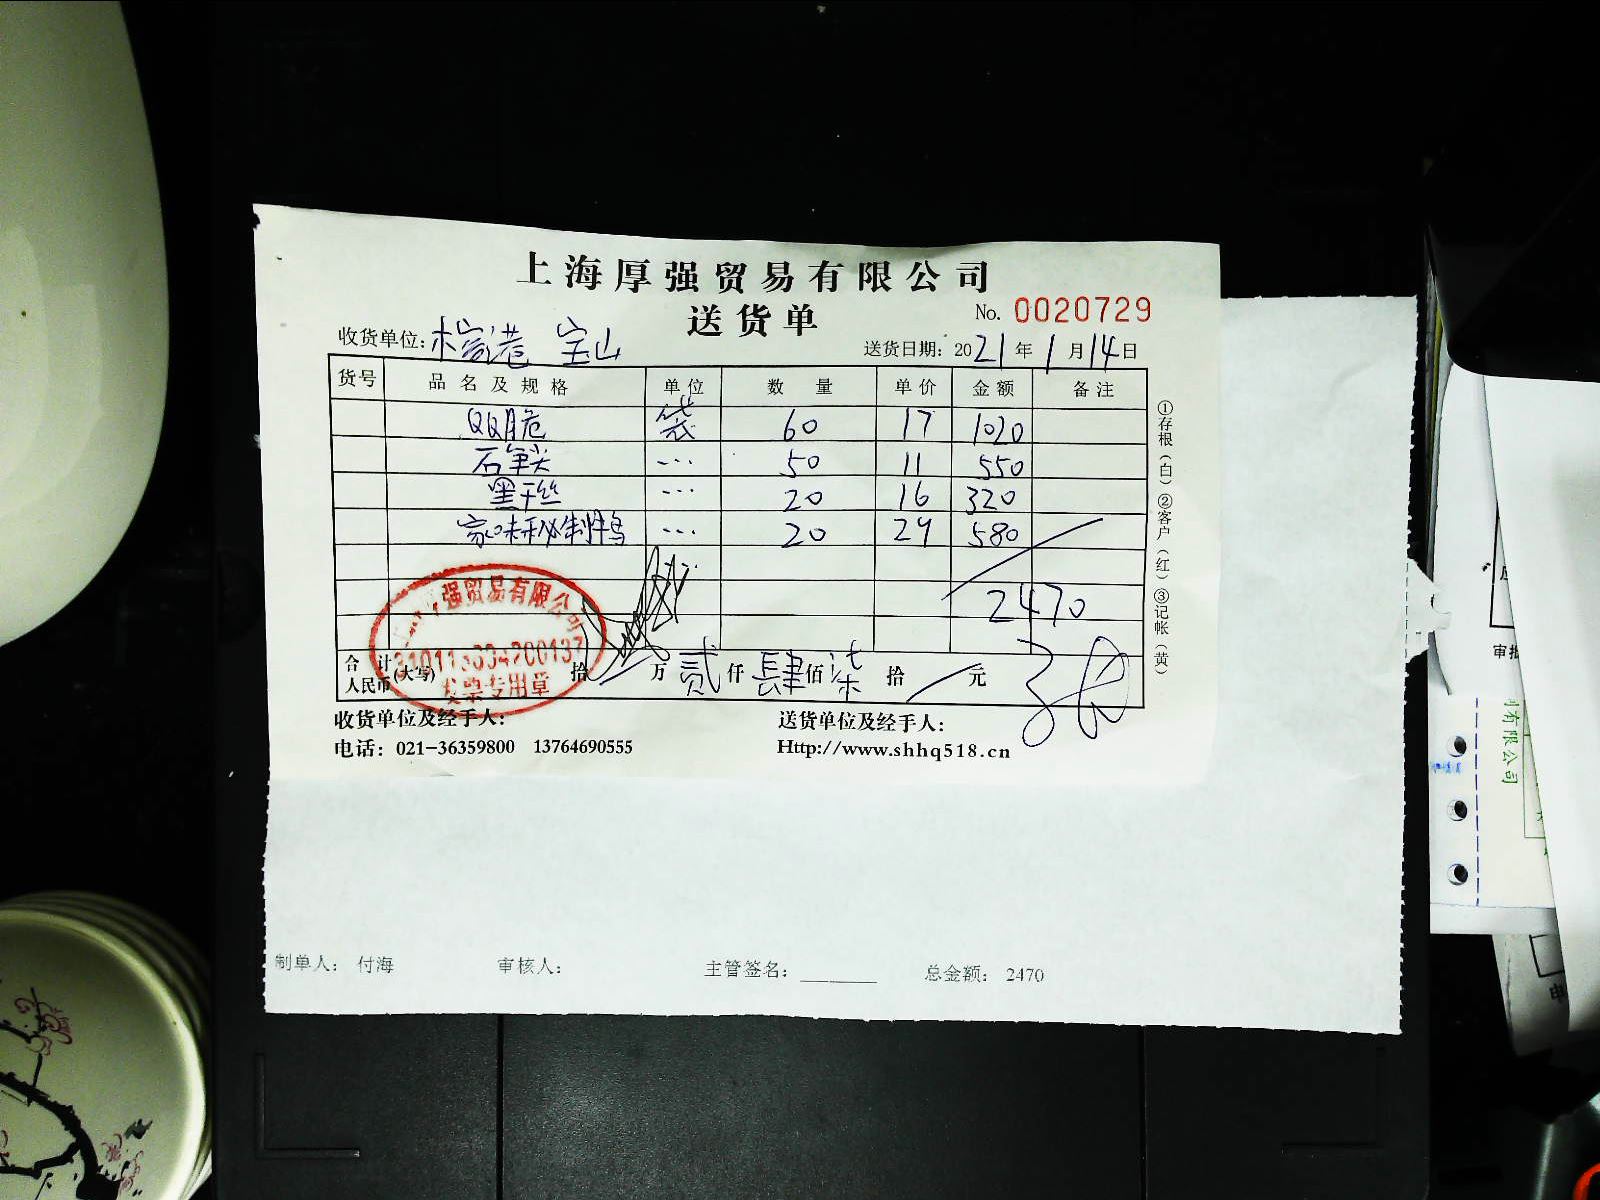 上海厚强贸易有限公司
送货单
No. 0020729
收货单位: 杨家港 宝山
送货日期: 2021年1月14日
货号 品名及规格 单位 数量 单价 金额 备注
QQ脆 袋 60 17 1020
石笋尖 … 50 11 550
黑干丝 … 20 16 320
家味秘制鸭 … 20 29 580
2470
合计人民币(大写) 拾 万 贰 仟 肆 佰 柒 拾 元
强贸易有限公司
发票专用章
①存根(白)②客户(红)③记帐(黄)
收货单位及经手人:
送货单位及经手人:
电话: 021-36359800 13764690555
Http://www.shhq518.cn
制单人: 付海 审核人: 主管签名: 总金额: 2470
有限公司
审批